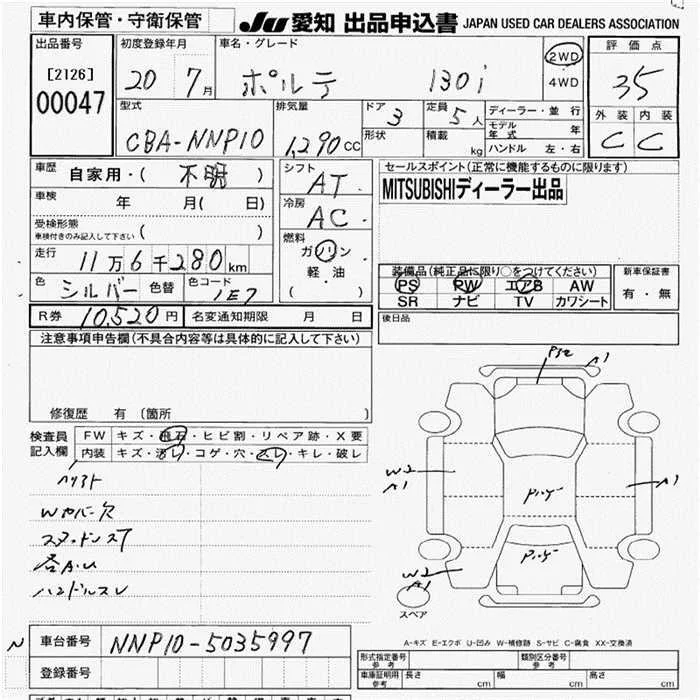 車内保管・守衛保管
JU 愛知 出品申込書 JAPAN USED CAR DEALERS ASSOCIATION
出品番号
[2126]
00047
初度登録年月
20 7月
車名・グレード
ポルテ 130i
2WD
4WD
評価点
3.5
外装 内装
C C
型式
CBA-NNP10
排気量
1,290cc
ドア 3
形状
定員 5人
積載 kg
ディーラー・並行
モデル年式 年
ハンドル 左・右
車歴
自家用・( 不明 )
車検
年 月( 日)
受検形態
車検付きのみ記入して下さい ( )
走行
11万6千280km
色 シルバー 色替 色コード 1E7
シフト
AT
冷房
AC
燃料
ガソリン
軽油
( )
セールスポイント(正常に機能するものに限ります)
MITSUBISHIディーラー出品
装備品(純正品に限り○をつけてください)
PS PW エアB AW
SR ナビ TV カワシート
新車保証書
有・無
R券 10,520円 名変通知期限 月 日
後日品
注意事項申告欄(不具合内容等は具体的に記入して下さい)
修復歴 有 (箇所 )
検査員記入欄
FW キズ・飛石・ヒビ割・リペア跡・X要
内装 キズ・汚レ・コゲ・穴・スレ・キレ・破レ
ハンドルスレ
A1
W2
A1
A1
W2
A1
スペア
A-キズ E-エクボ U-凹み W-補修跡 S-サビ C-腐食 XX-交換済
N 車台番号 NNP10-5035997
登録番号
形式指定番号 参考
類別区分番号 参考
車庫証明用 参考 長さ cm 幅 cm 高さ cm